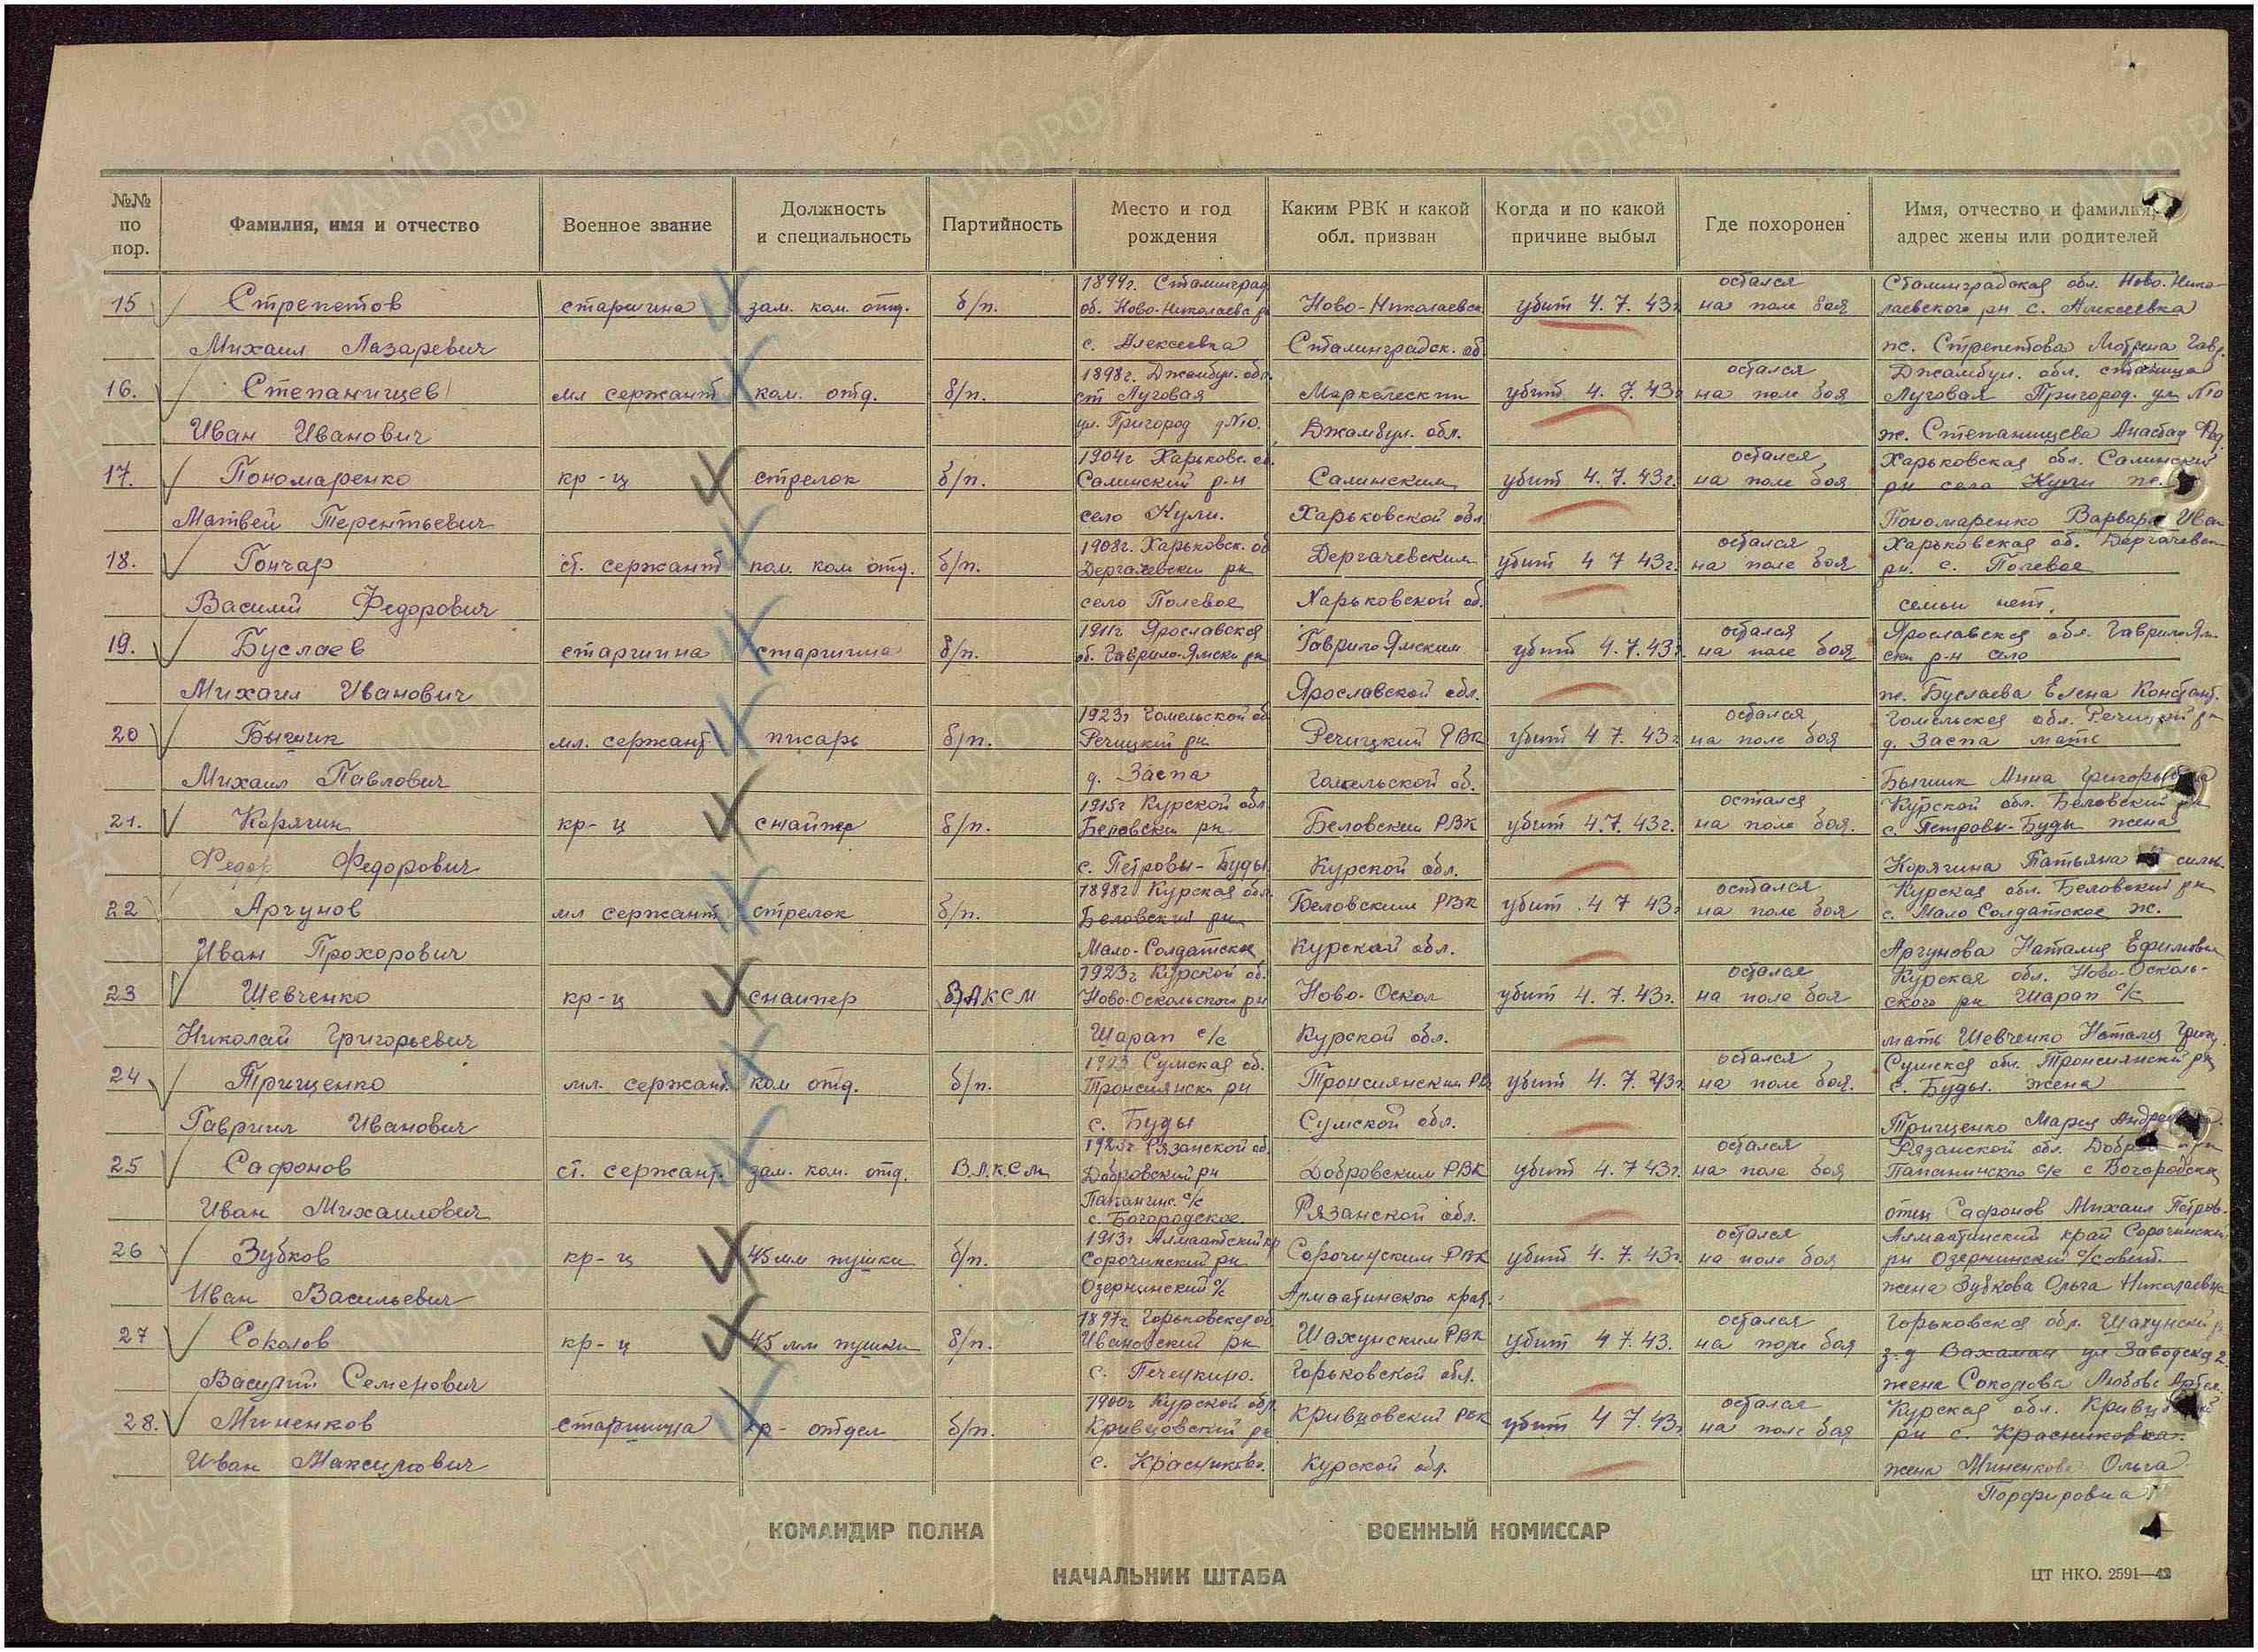 №№ по пор.
Фамилия, имя и отчество
Военное звание
Должность и специальность
Партийность
Место и год рождения
Каким РВК и какой обл. призван
Когда и по какой причине выбыл
Где похоронен
Имя, отчество и фамилия, адрес жены или родителей
15 Стрепетов старшина зам. ком. отд. б/п. 1899г. Сталинград. об. Ново-Николаевс рн Ново-Николаевск убит 4.7.43г остался на поле боя Сталинградская обл. Ново-Нико-лаевского рн с. Алексеевка
Михаил Лазаревич с. Алексеевка Сталинградск. об. ж. Стрепетова
16. Степанищев мл сержант ком. отд. б/п. 1898г. Джамбул. обл. ст Луговая убит 4.7.43г остался на поле боя Джамбул. обл. станица Луговая Пригород. ул №10
Иван Иванович ул. Пригород д№10. Джамбул. обл. ж. Степанищева
17. Пономаренко кр-ц стрелок б/п. 1904г Харьковс. об. Салинский р-н Салинским убит 4.7.43г. остался на поле боя Харьковская обл. Салинский рн село Кули
Матвей Терентьевич село Кули. Харьковской обл. Пономаренко Варвара Иван
18. Гончар ст. сержант пом. ком отд. б/п. 1908г. Харьковск. об Дергачевски рн Дергачевским убит 4 7 43г. остался на поле боя Харьковская об. Дергачевск рн. с. Полевое
Василий Федорович село Полевое Харьковской об. семьи нет.
19. Буслаев старшина старшина б/п. 1911г Ярославская об. Гаврило-Ямски рн Гаврило Ямским убит 4.7.43г остался на поле боя Ярославская обл. Гаврило Ям. ски р-н село
Михаил Иванович Ярославской обл. ж. Буслаева Елена Констант.
20 Бышик мл. сержант писарь б/п. 1923г Гомельской об Речицкий рн Речицкий РВК убит 4 7. 43г остался на поле боя Гомельская обл. Речицкий рн д. Заспа мать
Михаил Павлович д. Заспа Гомельской об. Бышик
21. Корягин кр-ц снайпер б/п. 1915г Курской обл Беловски рн. Беловским РВК убит 4.7.43г. остался на поле боя. Курской обл. Беловский рн с. Петровы-Буды жена
Федор Федорович с. Петровы-Буды Курской обл. Корягина Татьяна
22 Аргунов мл сержант стрелок б/п. 1898г Курская обл. Беловский рн Беловским РВК убит 4 7 43г остался на поле боя Курская обл. Беловский рн с. Мало Солдатское ж.
Иван Прохорович Мало-Солдатское Курской обл. Аргунова Наталия Ефимовн
23 Шевченко кр-ц снайпер ВЛКСМ 1923г Курской об. Ново-Оскольского рн Ново-Оскол убит 4.7.43г. остался на поле боя Курская обл. Ново-Осколь-ского рн Шарап с/с
Николай Григорьевич Шарап с/с Курской обл. мать Шевченко
24 Трищенко мл. сержант. ком отд. б/п. 1923 Сумская об. Тронсиянск. рн Тронсиянским РВ убит 4.7.43г остался на поле боя. Сумская обл. Тронсиянский рн с. Буды. жена
Гавриил Иванович с. Буды Сумской обл. Трищенко Мария
25 Сафонов ст. сержант. зам. ком. отд. В.Л.К.С.М Рязанской об. Добровский рн Добровским РВК убит 4.7 43г. остался на поле боя Рязанской обл. с/с с Богородское
Иван Михайлович с/с с. Богородское. Рязанской обл. отец Сафонов Михаил Петров.
26 Зубков кр-ц 45мм пушки б/п. 1913г Алмаатский кр Сорочинский рн Сорочинским РВК убит 4.7.43г. остался на поле боя Алмаатинский край Сорочинский рн Озернинский с/совет.
Иван Васильевич Озернинский с/с Алмаатинского края. жена Зубкова Ольга Николаевна
27 Соколов кр-ц 45 мм пушки б/п. 1897г. Горьковская об Ивановский рн Шахунским РВК убит 4 7.43. остался на поле боя Горьковская обл. Шахунский р з-д Вахаман ул Заводская 2.
Василий Семенович с. Печеукино. Горьковской обл. жена Соколова Любовь
28. Миненков старшина кр-отдел б/п. 1900г Курской обл. Кривцовский рн Кривцовский РВК убит 4 7.43г остался на поле боя Курская обл. Кривцовский рн с. Красниковка.
Иван Максимович с. Красниково. Курской обл. жена Миненкова Ольга
Порфировна
КОМАНДИР ПОЛКА
ВОЕННЫЙ КОМИССАР
НАЧАЛЬНИК ШТАБА
ЦТ НКО. 2591—42